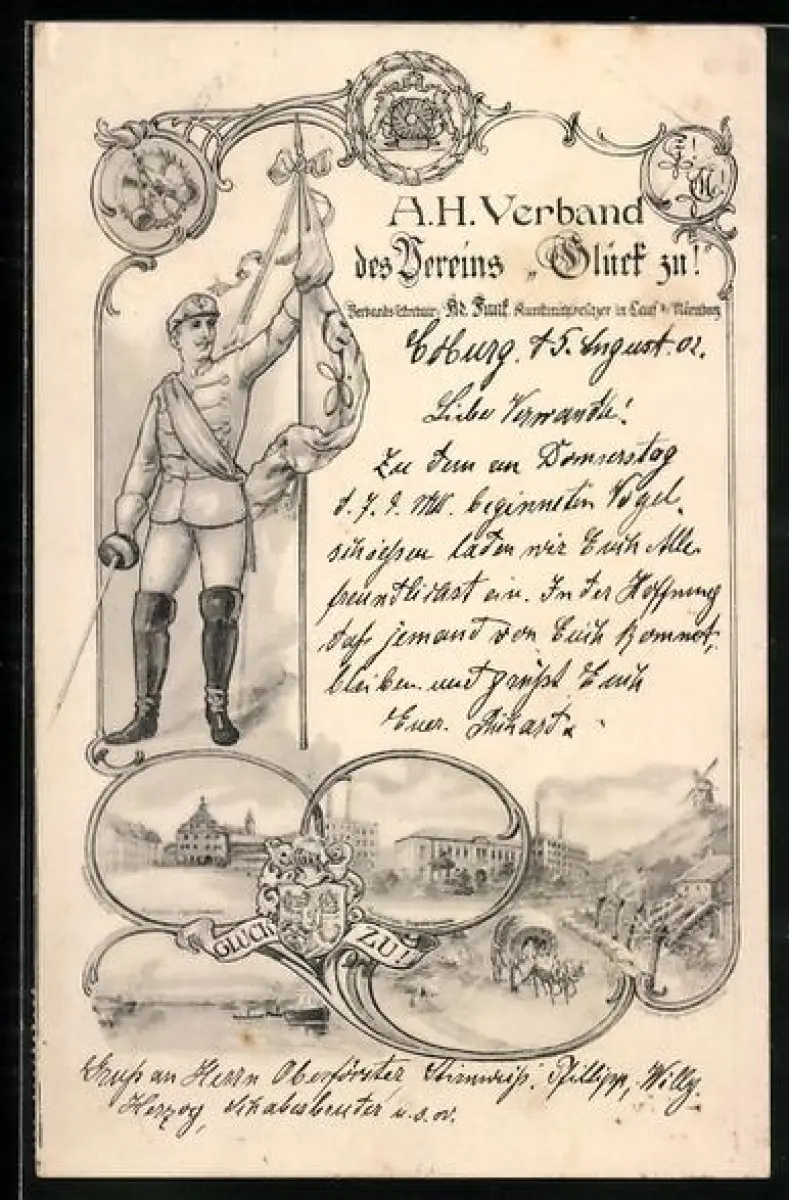 Z!
M!
A.H. Verband
des Vereins „Glück zu!"
Kunstmühlbesitzer in Lauf b/ Nürnberg
Coburg, d 5. August. 02.
Liebe Verwandte!
Zu dem am Donnerstag
d. 7. d. Mts. beginneten Vogel-
schießen laden wir Euch Alle
freundlichst ein. In der Hoffnung
daß jemand von Euch kommt,
bleiben und grüßt Euch
Euer. Richard
GLÜCK ZU!
Gruß an Herrn Oberförster, Phillipp, Willy.
Herzog, u.s.w.